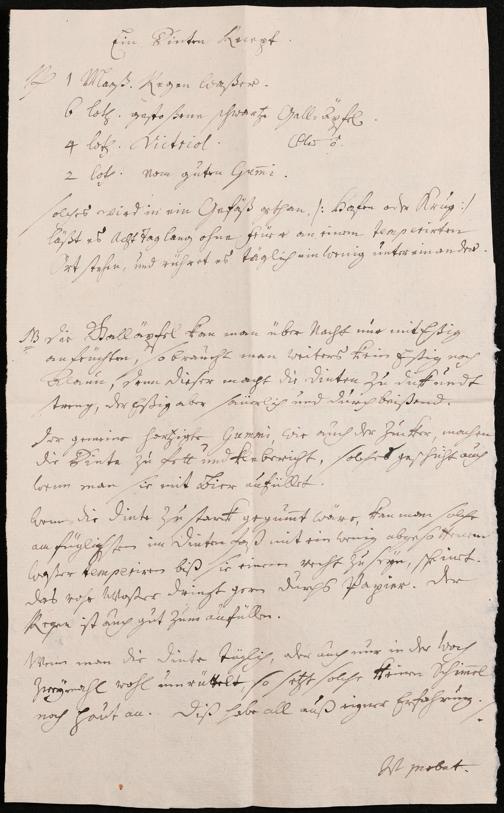 Ein Dinten Recept.
1 Maaß. Regen Waßer.
6 loth. gestoßene schwartze Galläpfel.
4 loth. Victriol.
2 loth. vom guten Gum̄i.
solches wird in ein Gefäß gethan, /: Hafen oder Krug :/
läßt es acht Tag lang ohne feuer an einem temperirten
Ort stehen, und rühret es täglich ein wenig untereinander.
NB die Galläpfel kan man über Nacht nur mit Eßig
anfeuchten, so braucht man weiters kein Eßig noch
Alaun, denn dieser macht die dinten zu dick und
streng, der Eßig aber säuerlich und durchbeißend.
Der gemeine hartzigte Gummi, wie auch der Zucker, machen
die Dinte zu fett und klebericht, solches geschicht auch
wenn man sie mit Bier anfüllet.
Wenn die Dinte zu starck gegumt wäre, kan man solche
am füglichsten im Dinten Faß mit ein wenig abgesottenem
waßer temperiren biß sie einem recht zu seyn, scheinet.
das rohe Waßer dringt gern durchs Papier. Der
Regen ist auch gut zum anfüllen.
Wenn man die Dinte täglich, oder auch nur in der Woch
zweymahl wohl umrüttelt, so setzt solche keinen Schimmel
noch Haut an. Diß habe all auß eigner Erfahrung.
Est probat.